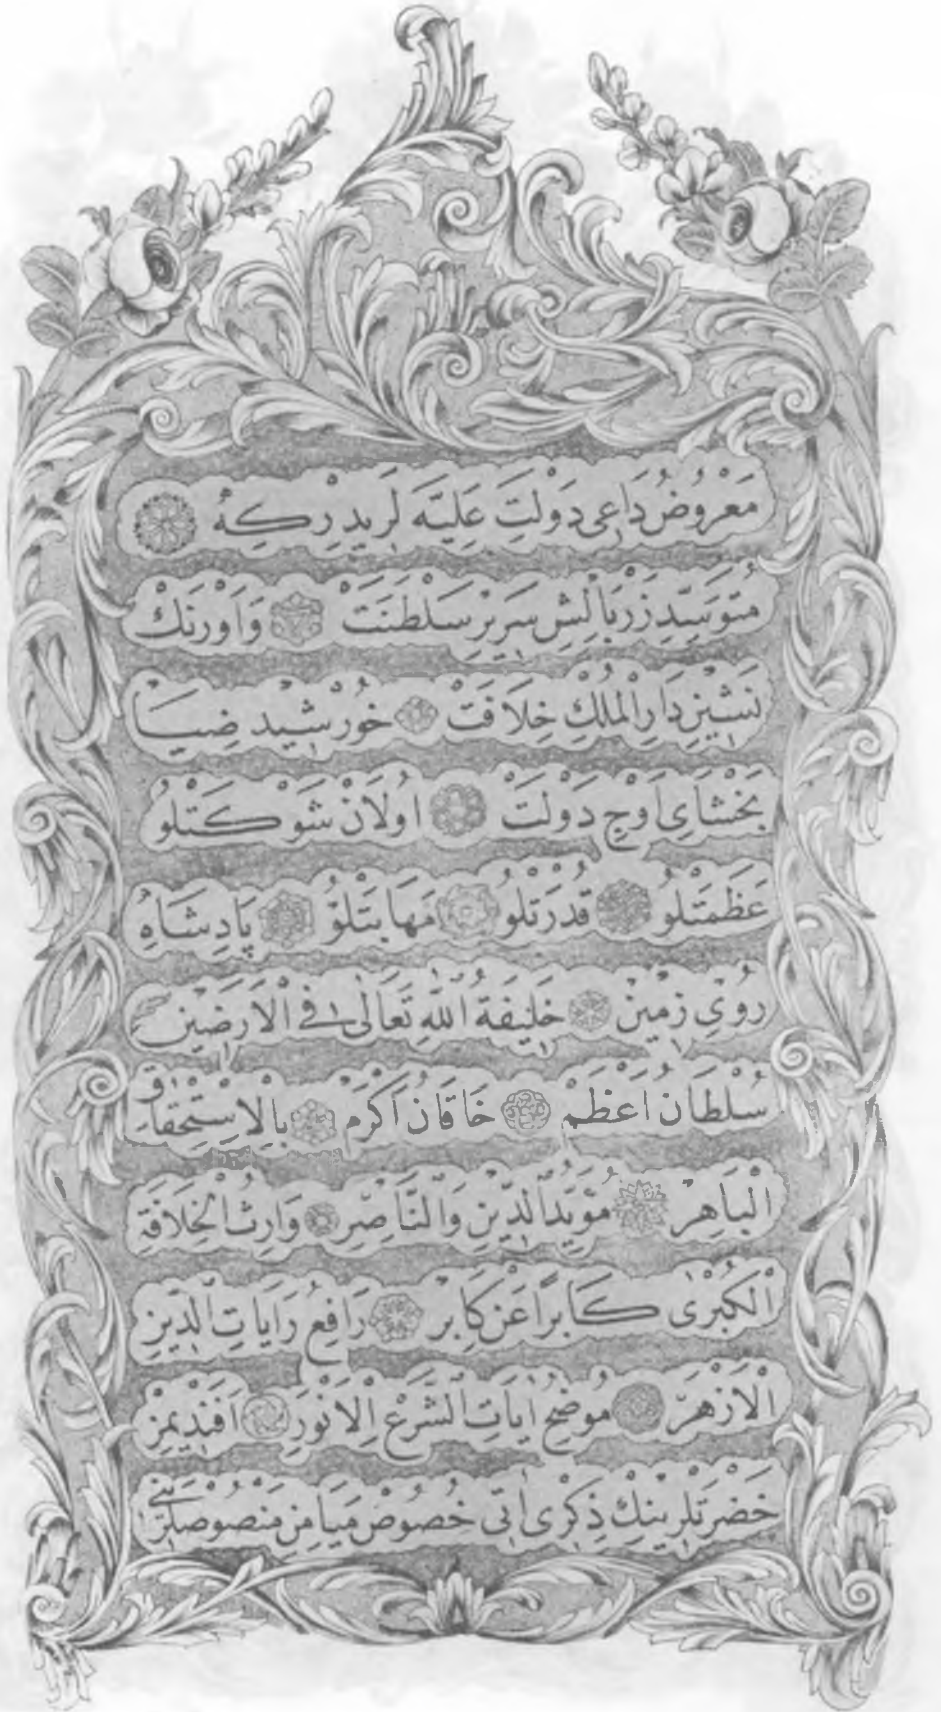 مَعْرُوضُ دَاعِی دَوْلَتَ عَلِیَّه لَرِیدِرْ کِهْ
مُتَوَسِّدِ زَرْبَالِشِ سَرِیرِ سَلْطَنَتْ وَاَوْرَنْكْ
نَشِینِ دَارِ الْمُلْكِ خِلَافَتْ خُورْشِیدِ ضِیَا
بَخْشَایِ اَوْجِ دَوْلَتْ اُولَانْ شَوْکَتْلُو
عَظَمَتْلُو قُدْرَتْلُو مَهَابَتْلُو پَادِشَاهِ
رُویِ زَمِینْ خَلِیفَةُ اللّٰهِ تَعَالٰی فِی الْاَرَضِینْ
سُلْطَانِ اَعْظَمْ خَاقَانِ اَکْرَمْ بِالْاِسْتِحْقَاقِ
الْبَاهِرْ مُؤَیِّدُ الدِّینِ وَالنَّاصِرِ وَارِثُ الْخِلَافَةِ
الْکُبْرٰی کَابِرًا عَنْ کَابِرْ رَافِعُ رَایَاتِ الدِّینِ
الْاَزْهَرْ مُوضِحُ اٰیَاتِ الشَّرْعِ الْاَنْوَرِ اَفَنْدِیمِزْ
حَضْرَتْلَرِینِكْ ذِکْرِی اٰتِی خُصُوصْ مَیَامِنْ مَنْصُوصْلَرِنِی